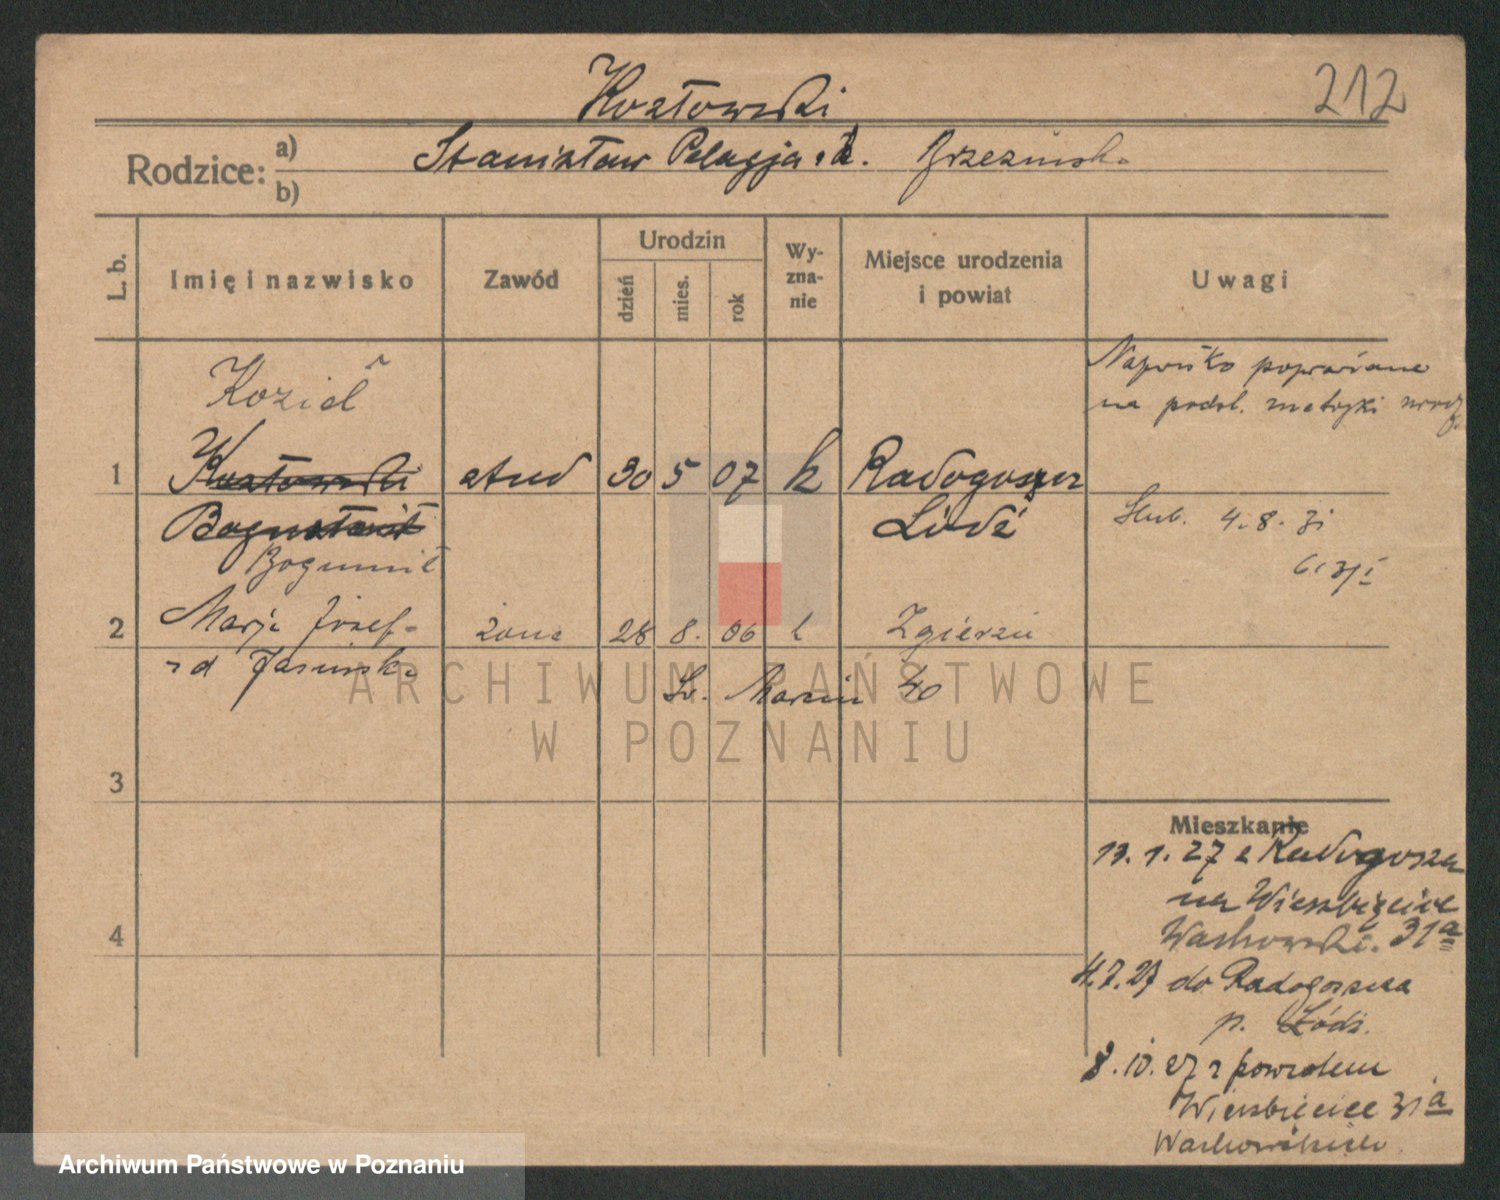 Kozłowski
212
Rodzice: a) Stanisław Pelagja z d. Brzezińska
b)
L. b.
Imię i nazwisko
Zawód
Urodzin
dzień
mies.
rok
Wy-
zna-
nie
Miejsce urodzenia
i powiat
Uwagi
Kozieł
Nazwisko poprawiane
na podst. metryki urodz.
1 Kozłowski stud 30 5 07 k Radogoszcz
Bogusław Łódź
Bogumił
Ślub. 4.8.31
2 Marja Józef- żona 28 8. 06 k Zgierzu
z d Jasińska
Św. Marcin 40
3
4
Mieszkanie
13.1.27 z Radogoszcz
na Wierzbięcice
Wachowski. 31a
4.7.27 do Radogoszcza
p. Łódź.
8.10.27 z powrotem
Wierzbięcice 31a
ARCHIWUM PAŃSTWOWE
W POZNANIU
Archiwum Państwowe w Poznaniu